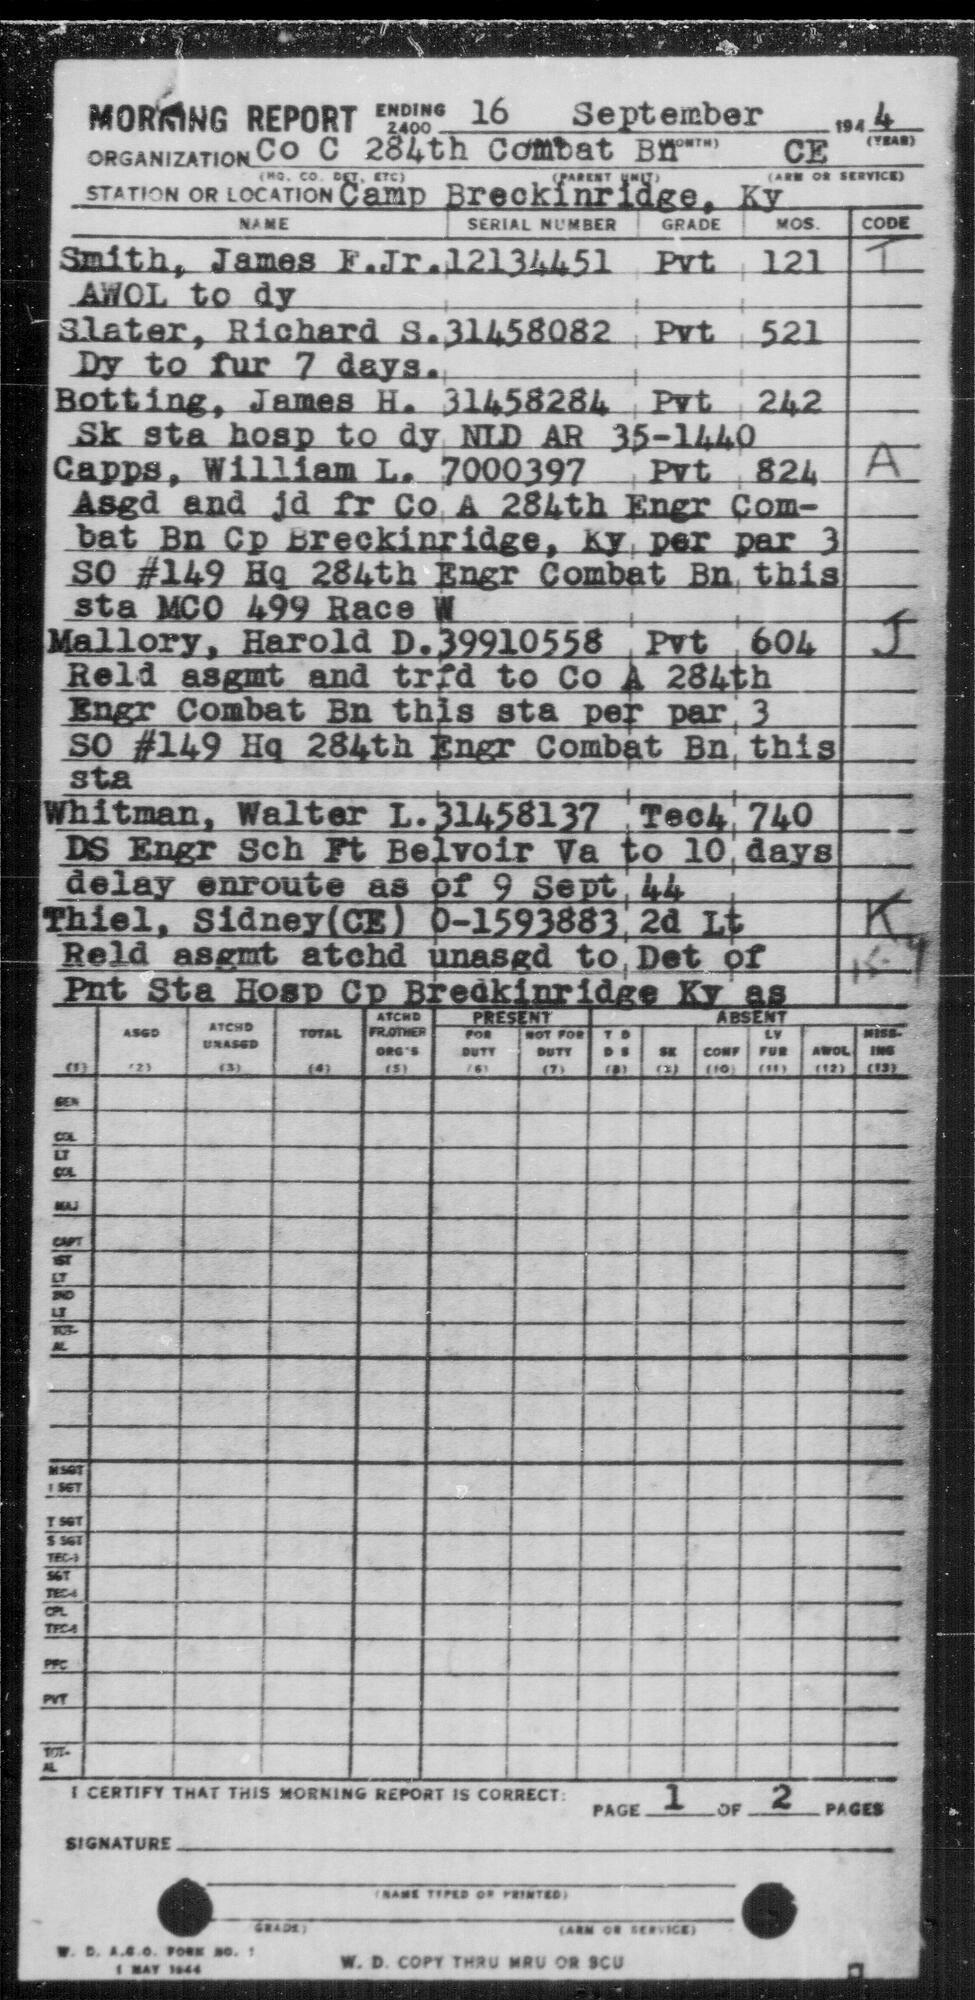 MORNING REPORT ENDING 2400 16 September 194 4
(MONTH) (YEAR)
ORGANIZATION Co C 284th Combat Bn CE
(HQ. CO. DET, ETC) (PARENT UNIT) (ARM OR SERVICE)
STATION OR LOCATION Camp Breckinridge, Ky
NAME SERIAL NUMBER GRADE MOS. CODE
Smith, James F.Jr. 12134451 Pvt 121 T
AWOL to dy
Slater, Richard S. 31458082 Pvt 521
Dy to fur 7 days.
Botting, James H. 31458284 Pvt 242
Sk sta hosp to dy NLD AR 35-1440
Capps, William L. 7000397 Pvt 824 A
Asgd and jd fr Co A 284th Engr Com-
bat Bn Cp Breckinridge, Ky per par 3
SO #149 Hq 284th Engr Combat Bn this
sta MCO 499 Race W
Mallory, Harold D. 39910558 Pvt 604 J
Reld asgmt and trfd to Co A 284th
Engr Combat Bn this sta per par 3
SO #149 Hq 284th Engr Combat Bn this
sta
Whitman, Walter L. 31458137 Tec4 740
DS Engr Sch Ft Belvoir Va to 10 days
delay enroute as of 9 Sept 44
Thiel, Sidney(CE) O-1593883 2d Lt K
Reld asgmt atchd unasgd to Det of
Pnt Sta Hosp Cp Bredkinridge Ky as
ATCHD PRESENT ABSENT
ASGD ATCHD UNASGD TOTAL FR.OTHER ORG'S FOR DUTY NOT FOR DUTY T D D S SK CONF LV FUR AWOL MISS-ING
(1) (2) (3) (4) (5) (6) (7) (8) (9) (10) (11) (12) (13)
GEN
COL
LT
COL
MAJ
CAPT
1ST
LT
2ND
LT
TOT-
AL
M SGT
1 SGT
T SGT
S SGT
TEC-3
SGT
TEC-4
CPL
TEC-5
PFC
PVT
TOT-
AL
I CERTIFY THAT THIS MORNING REPORT IS CORRECT:
PAGE 1 OF 2 PAGES
SIGNATURE
(NAME TYPED OR PRINTED)
GRADE) (ARM OR SERVICE)
W. D. A.G.O. FORM NO. 1
1 MAY 1944
W. D. COPY THRU MRU OR SCU